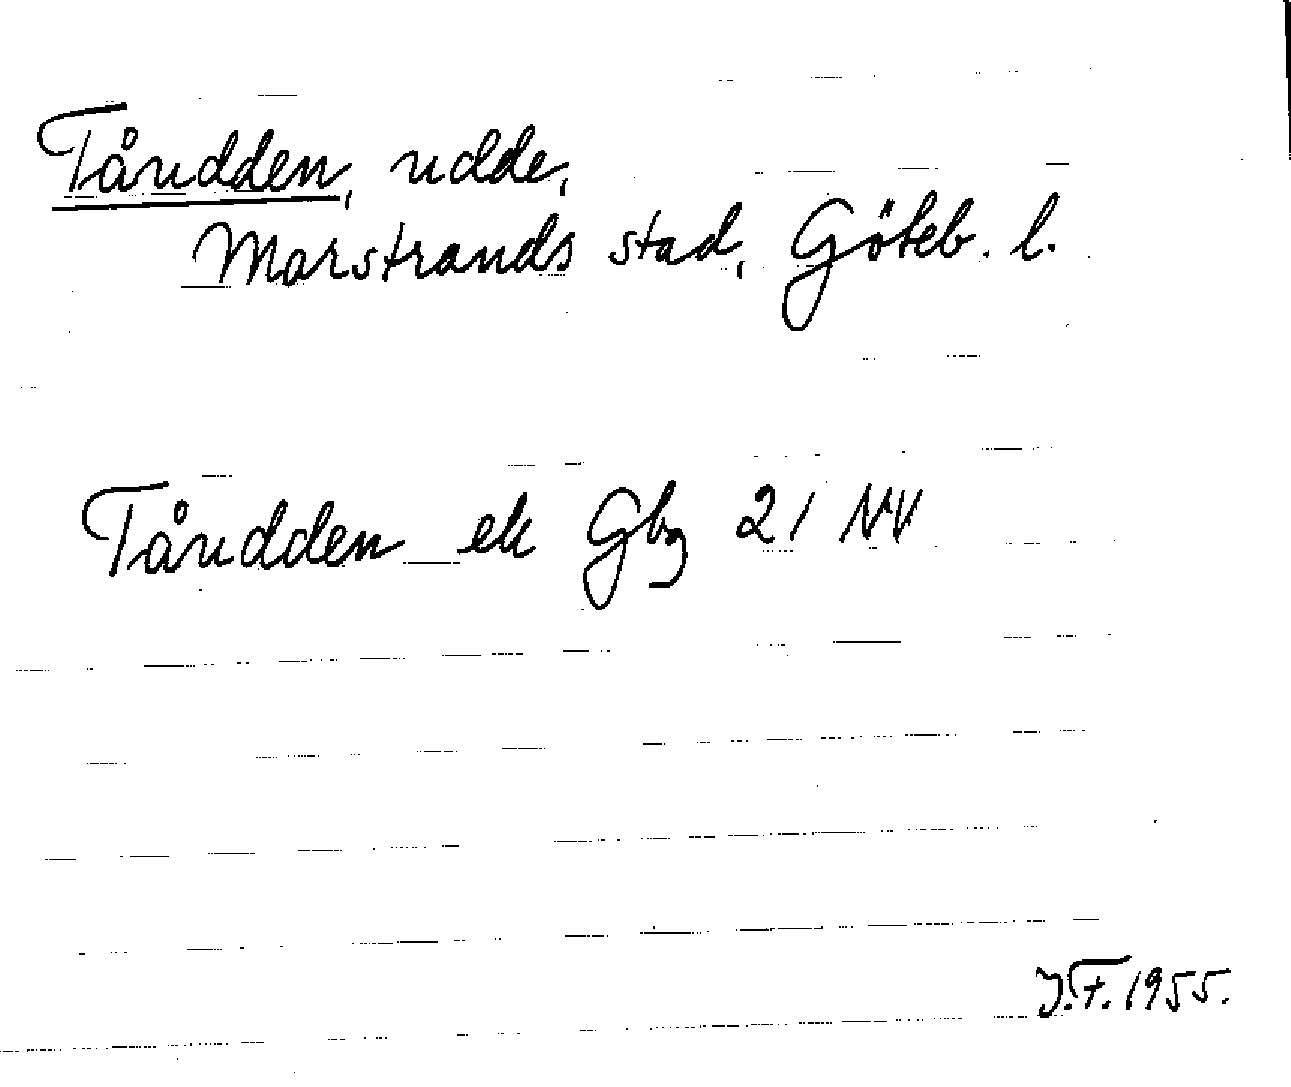 Tåudden, udde,
Marstrands stad, Göteb. l.
Tåudden ek Gbg 21 NV
J.F. 1955.